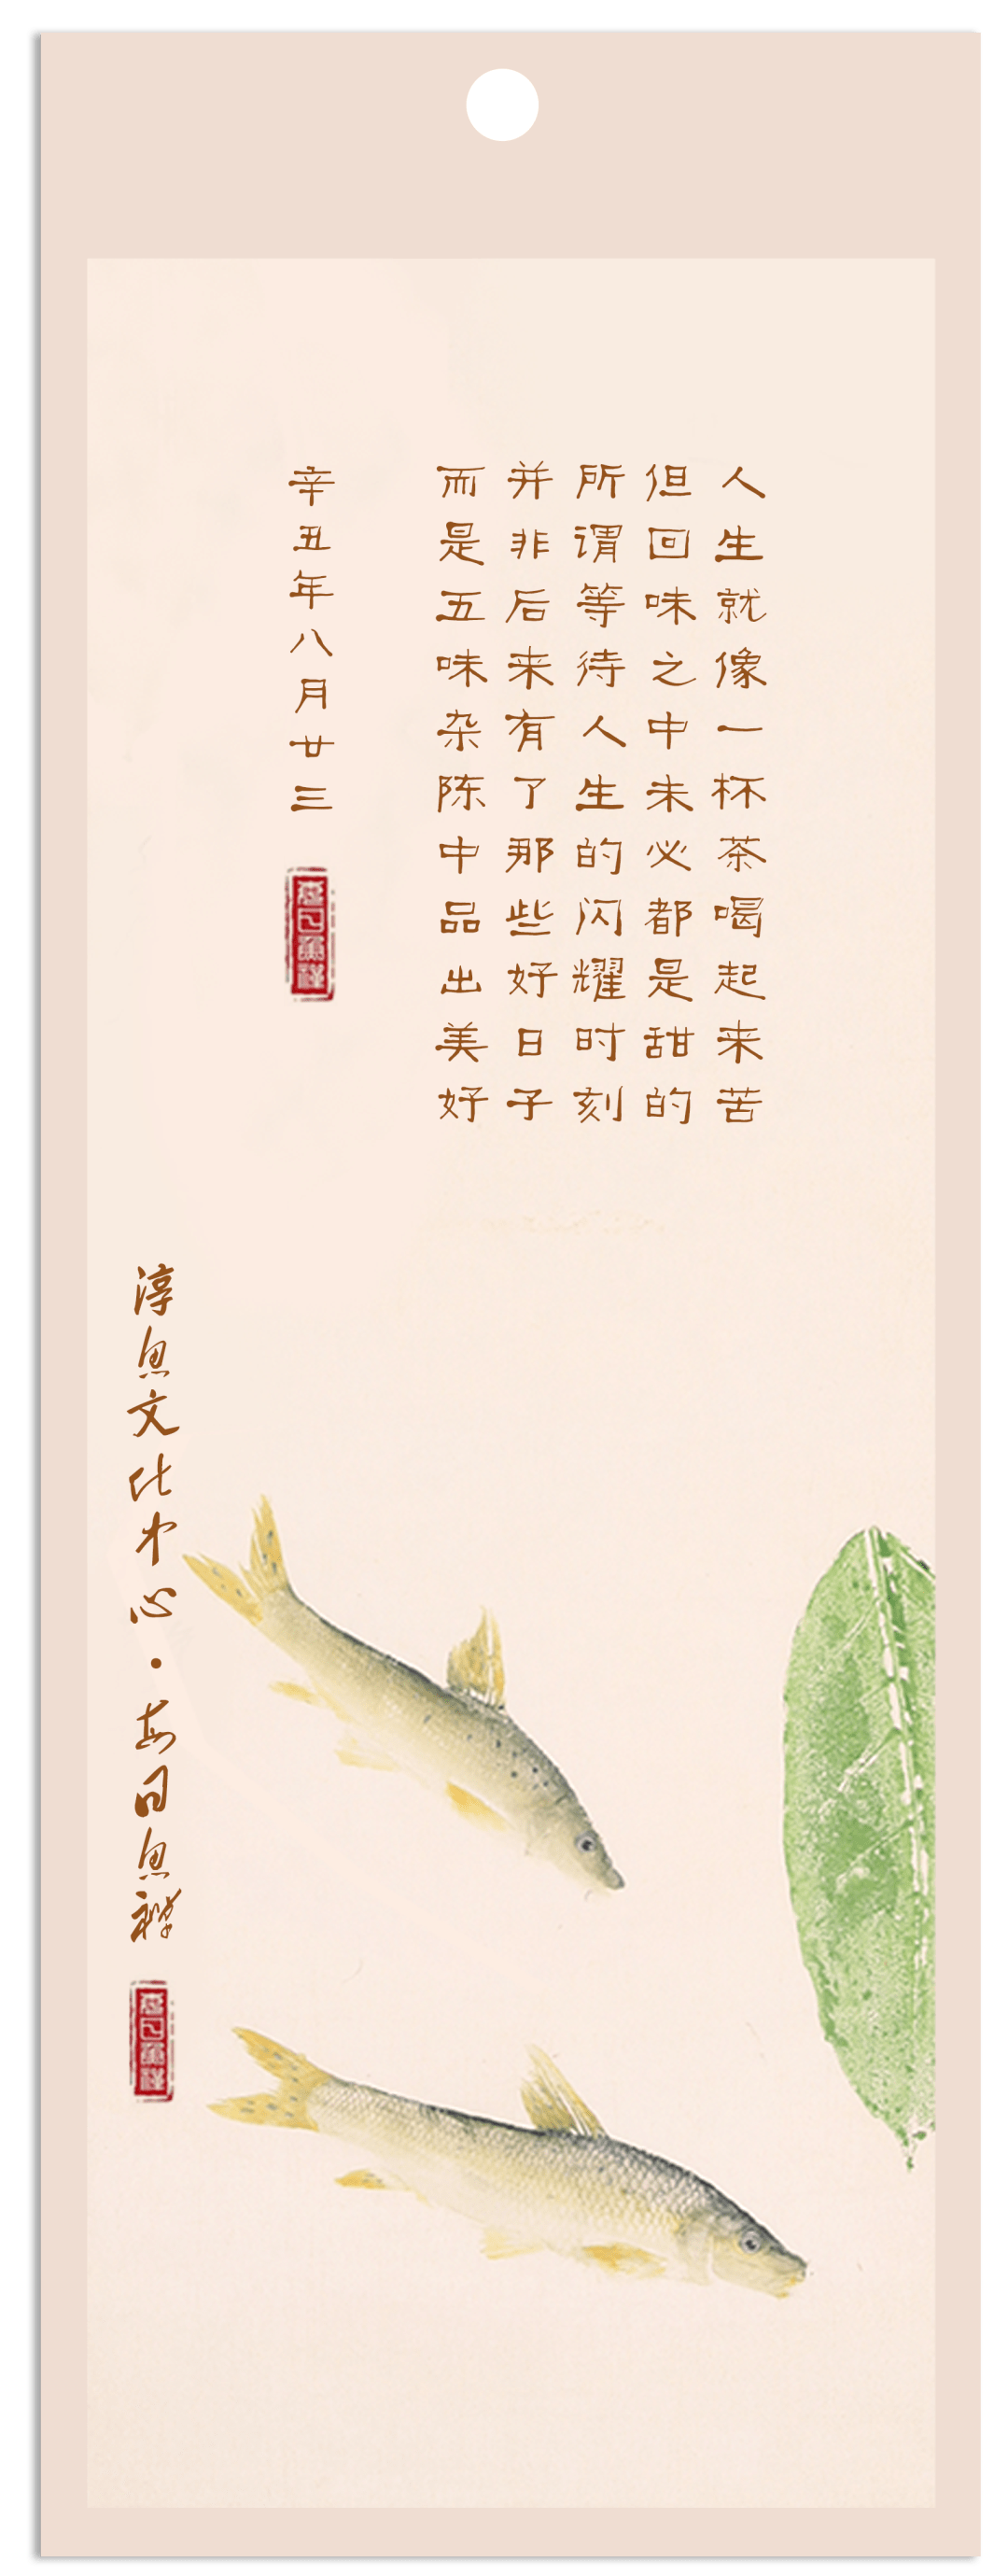 人生就像一杯茶喝起来苦
但回味之中未必都是甜的
所谓等待人生的闪耀时刻
并非后来有了那些好日子
而是五味杂陈中品出美好
辛丑年八月廿三
淳鱼文化中心·每日鱼禅